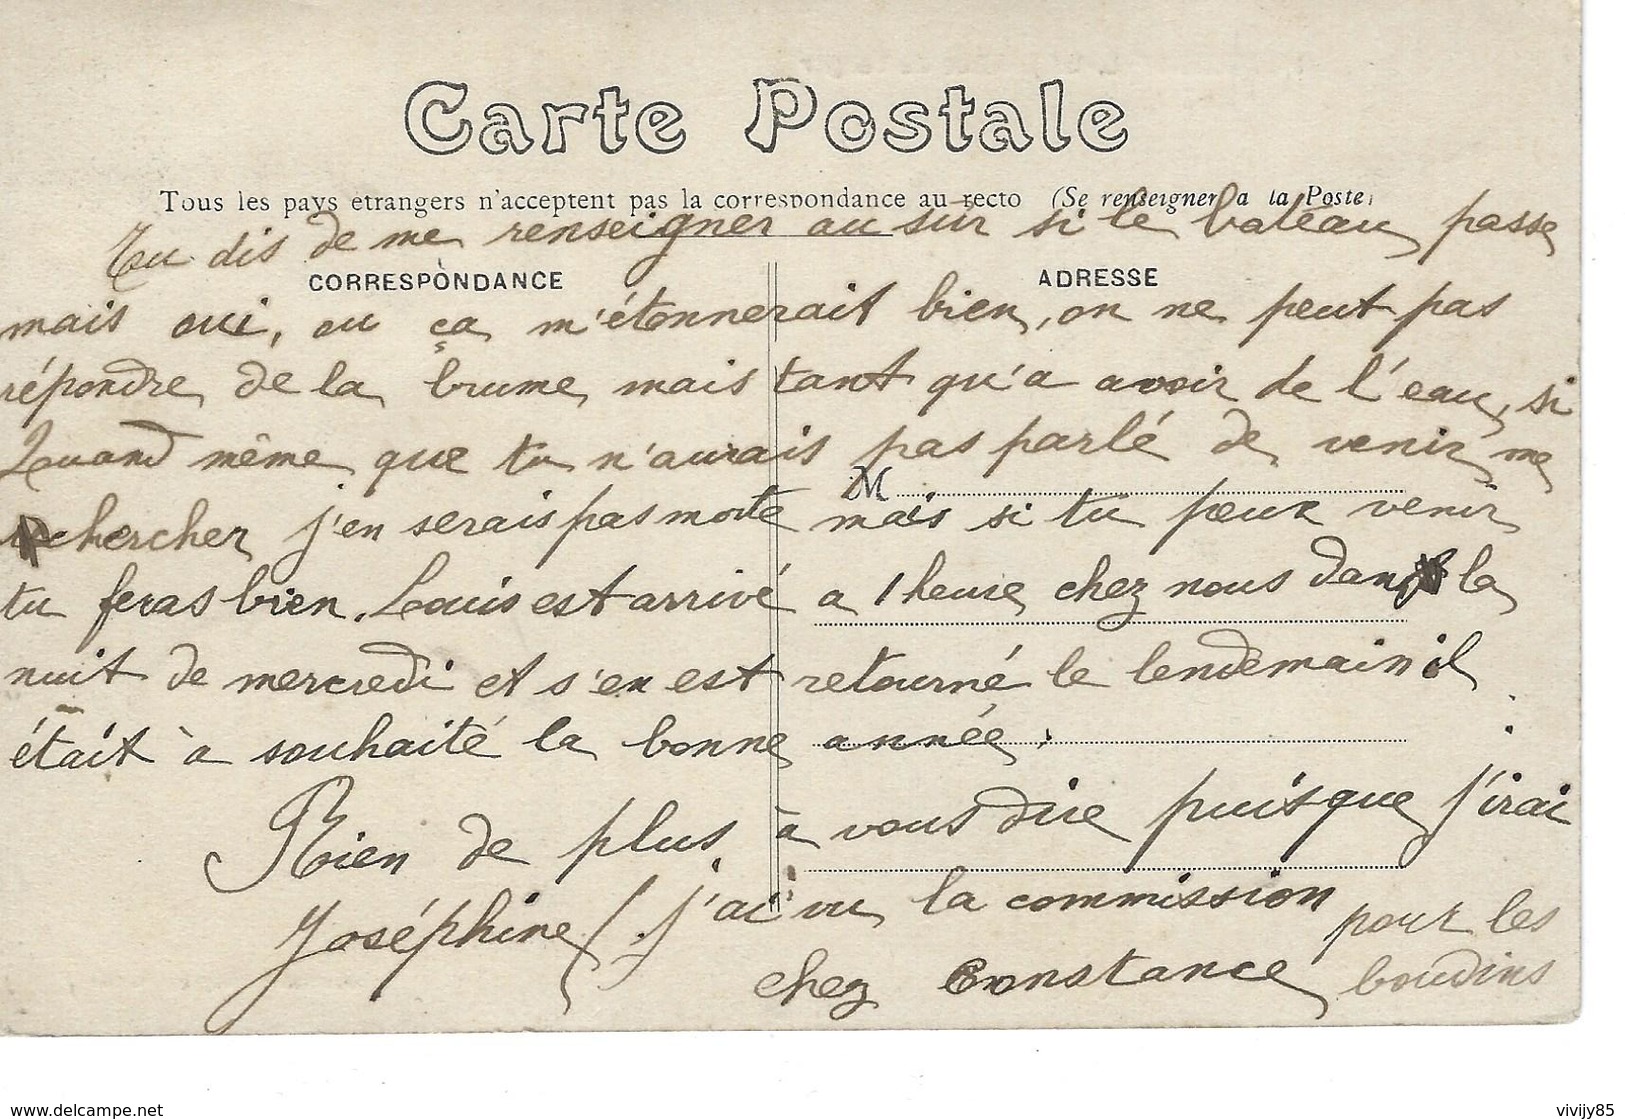 Carte Postale
Tous les pays étrangers n'acceptent pas la correspondance au recto (Se renseigner a la Poste)
Tu dis de me renseigner au sur si le bateau passe
CORRESPONDANCE
ADRESSE
mais oui, ou ça m'étonnerait bien, on ne peut pas
répondre de la brume mais tant qu'a avoir de l'eau, si
Quand même que tu n'aurais pas parlé de venir me
M
chercher j'en serais pas morte mais si tu peux venir
tu feras bien. Louis est arrivé a 1 heure chez nous dans la
nuit de mercredi et s'en est retourné le lendemain il
était à souhaité la bonne année.
Rien de plus à vous dire puisque j'irai
Joséphine / j'ai vu la commission pour les
chez Constance boudins
www.delcampe.net
vivijy85